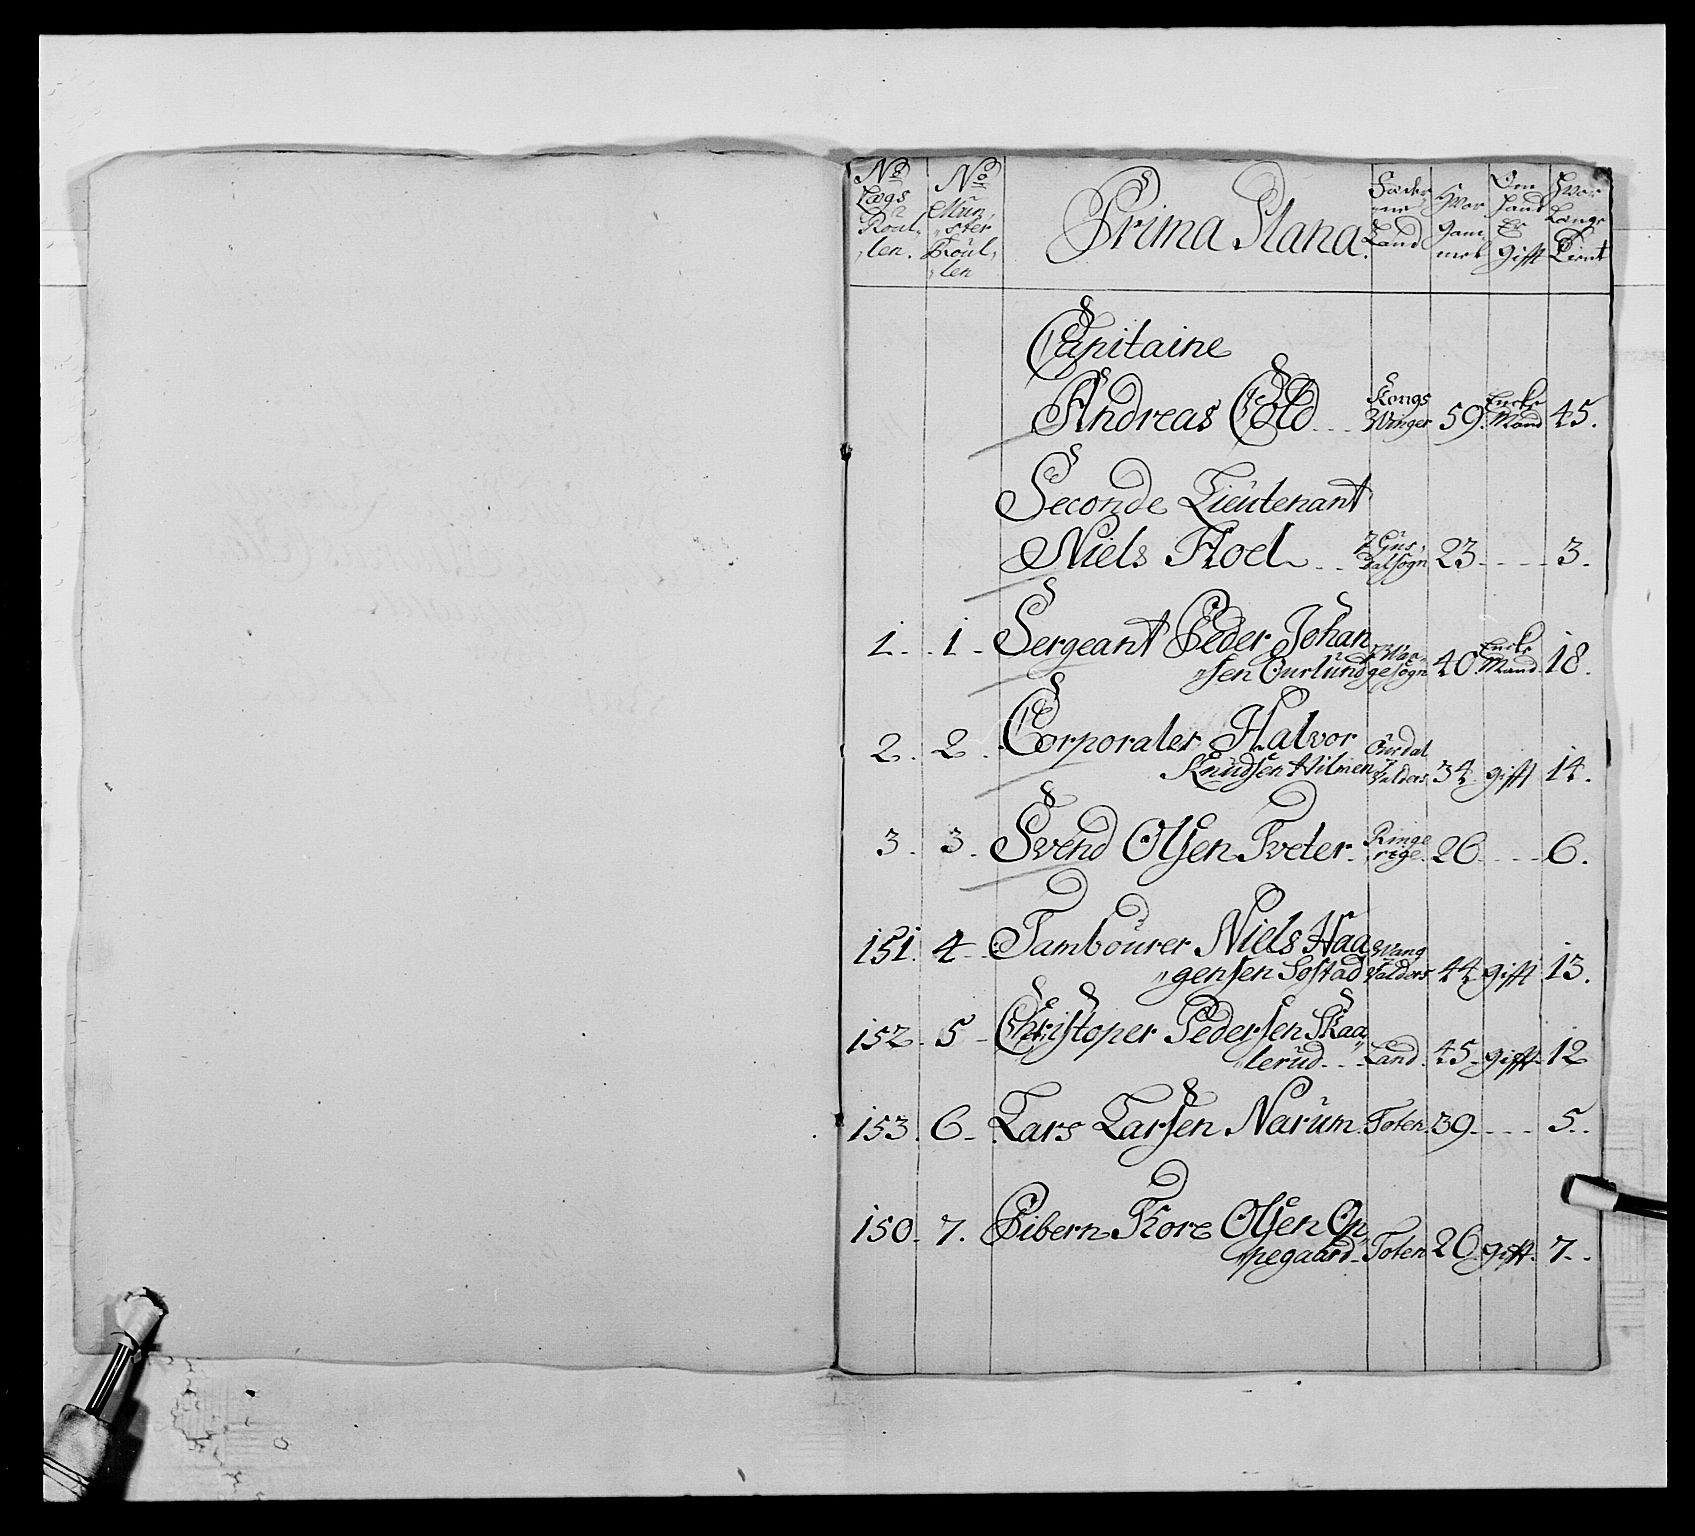 No Lægs Roul, len. No Mün, ster Roul, len Prima Plana. Fæder ne Land Hvor gam mel Om hand Er gifft Hvor Lenge Tient
Capitaine
Andreas Cold Kongs Winger 59. Encke Mand 45.
Seconde Lieütenant
Niels Floel 23 3.
1. 1. Sergeant Peder Johan
sen Ourlünd 40 Encke Mand 18.
2. 2. Corporaler Halvor
Knudsen Hilmen Ourdal Valders 34 gifft 14.
3. 3. Svend Olsen Tveter. Ringe rige. 26 6.
151. 4 Tambourer Niels Haa
gensen Sostad Wang Valders 44 gifft 13.
152. 5 Christoper Pedersen Skaa
lerud Land. 45 gifft 12
153. 6 Lars Larsen Narum Toten 39 5.
150. 7. Pibern Tore Olsen Op
pegaard Toten 26 gifft. 7.